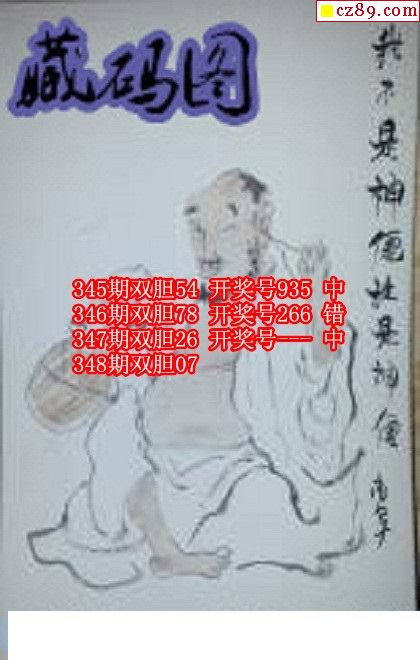 cz89.com
藏码图
我不是神僊谁是神僊
345期双胆54 开奖号935 中
346期双胆78 开奖号266 错
347期双胆26 开奖号--- 中
348期双胆07